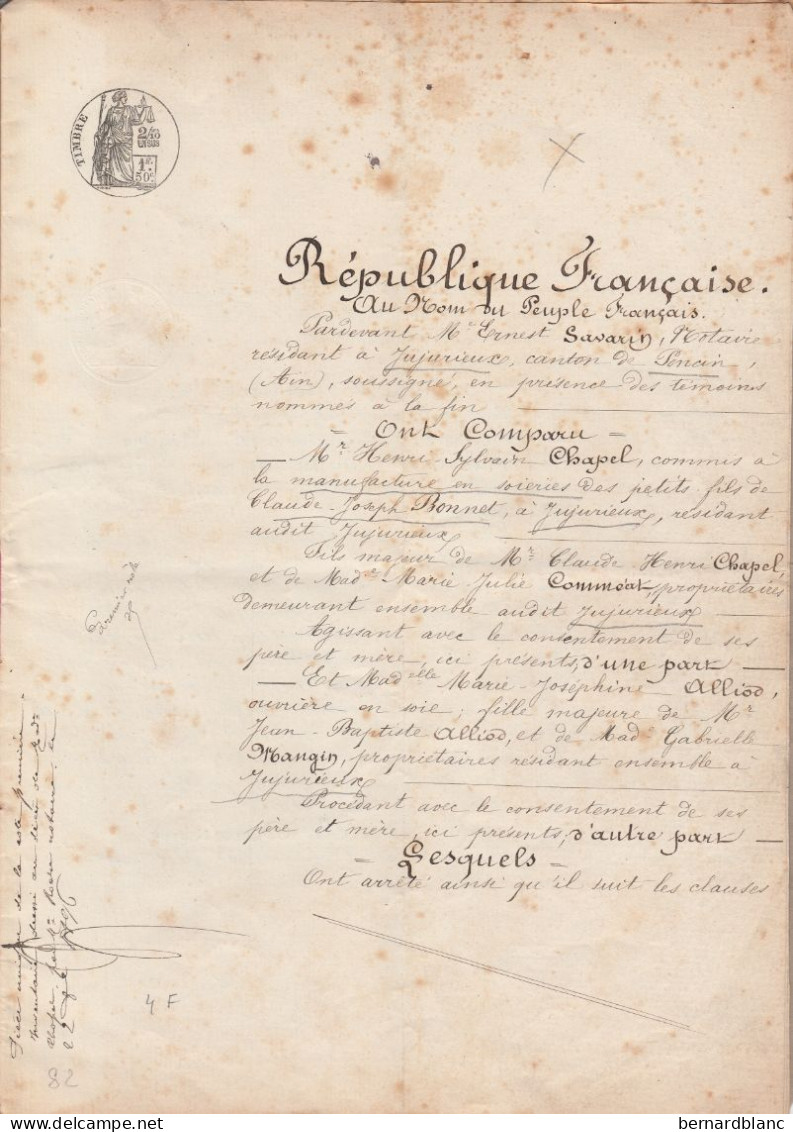 TIMBRE
2/10
EN SUS
1F.
50c.
République Française.
Au Nom du Peuple Français.
Pardevant Me Ernest Savarin, Notaire
résidant à Jujurieux, canton de Poncin,
(Ain), soussigné, en présence des témoins
nommés à la fin
= Ont Comparu =
— Mr Henri-Sylvain Chapel, commis à
la manufacture en soieries des petits fils de
Claude-Joseph Bonnet, à Jujurieux, résidant
audit Jujurieux
Fils majeur de Mr Claude-Henri Chapel,
et de Made Marie Julie Commoat, propriétaires
demeurant ensemble audit Jujurieux
Agissant avec le consentement de ses
père et mère, ici présents, d'une part —
— Et Madelle Marie-Joséphine Alliod,
ouvrière en soie, fille majeure de Mr
Jean-Baptiste Alliod, et de Made Gabrielle
Mangin, propriétaires résidant ensemble à
Jujurieux
Procédant avec le consentement de ses
père et mère, ici présents, d'autre part —
= Lesquels =
Ont arrêté ainsi qu'il suit les clauses
Premier rôle
Pièce unique de la cote première
inventaire dressé au décès de
Chapel par Me notaire le
22 1896
4 F
82
bernardblanc